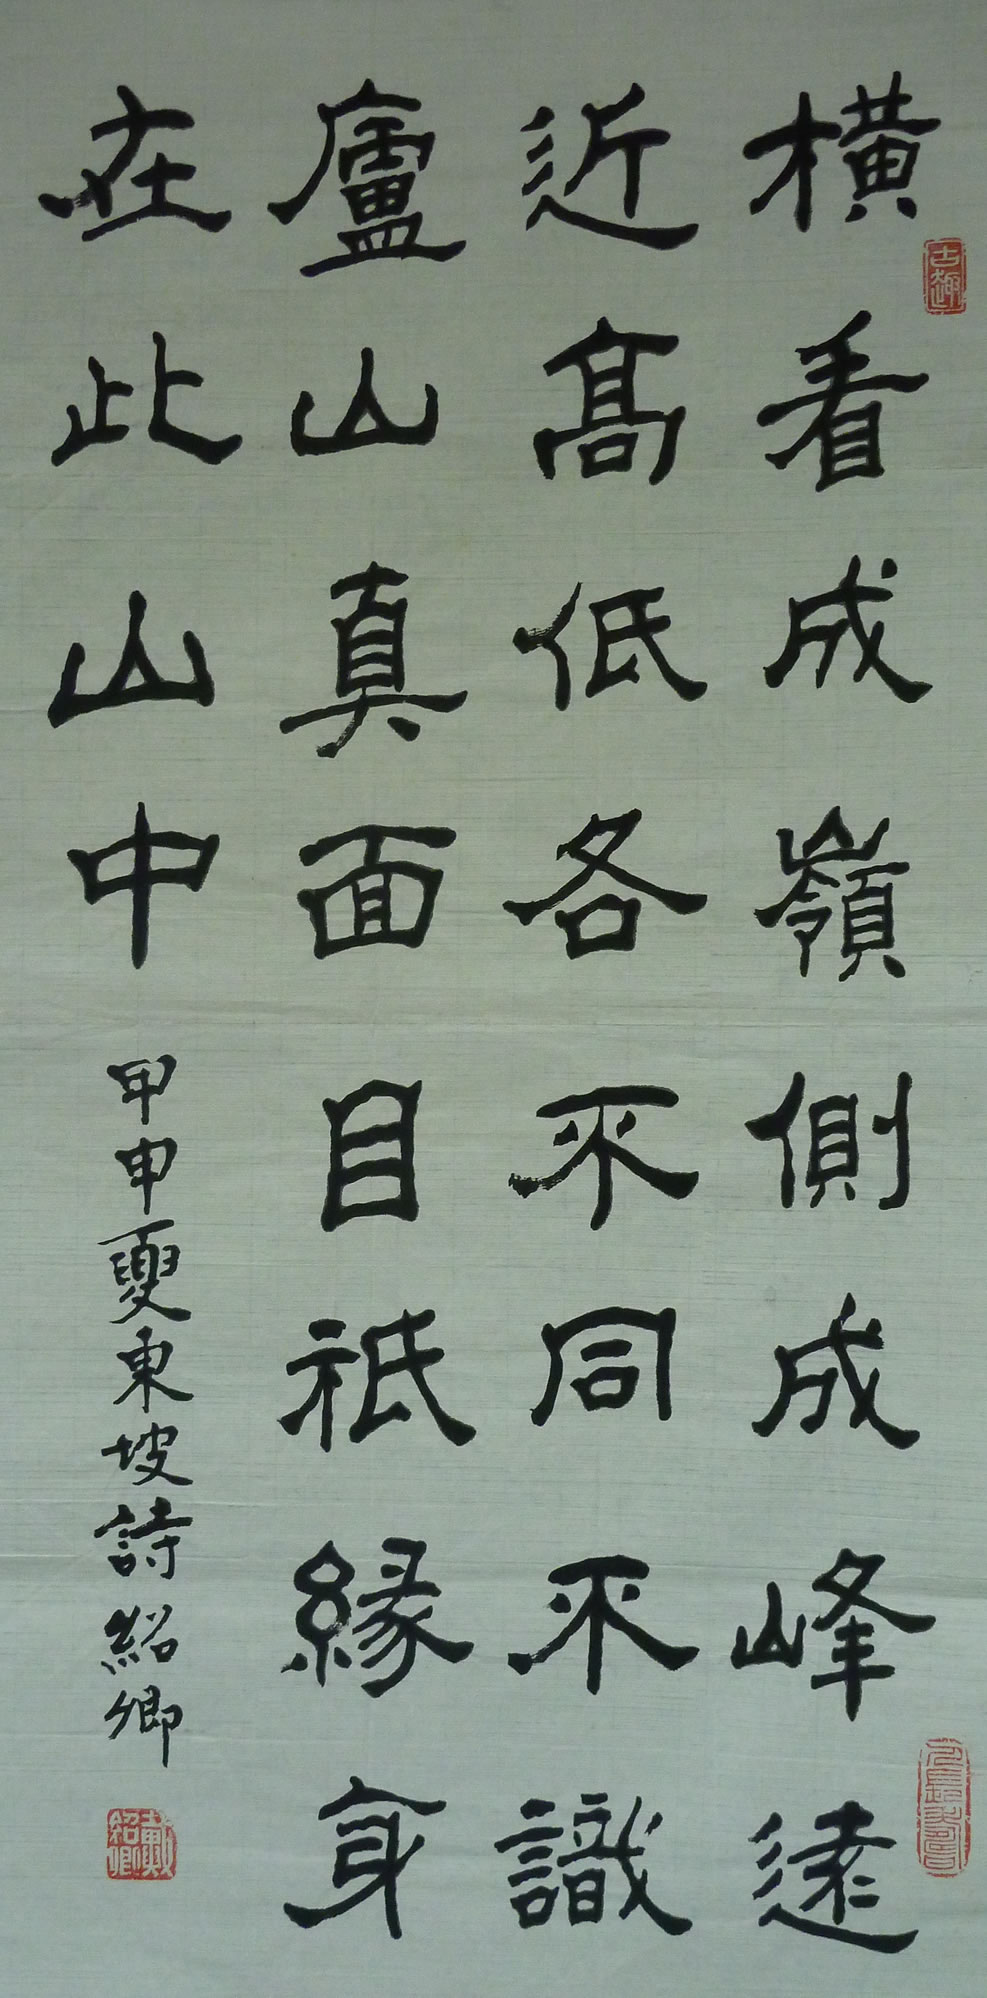 橫看成嶺側成峰遠
近高低各不同不識
廬山真面目祇緣身
在此山中
甲申夏東坡詩紹卿
古趣
戴紹卿